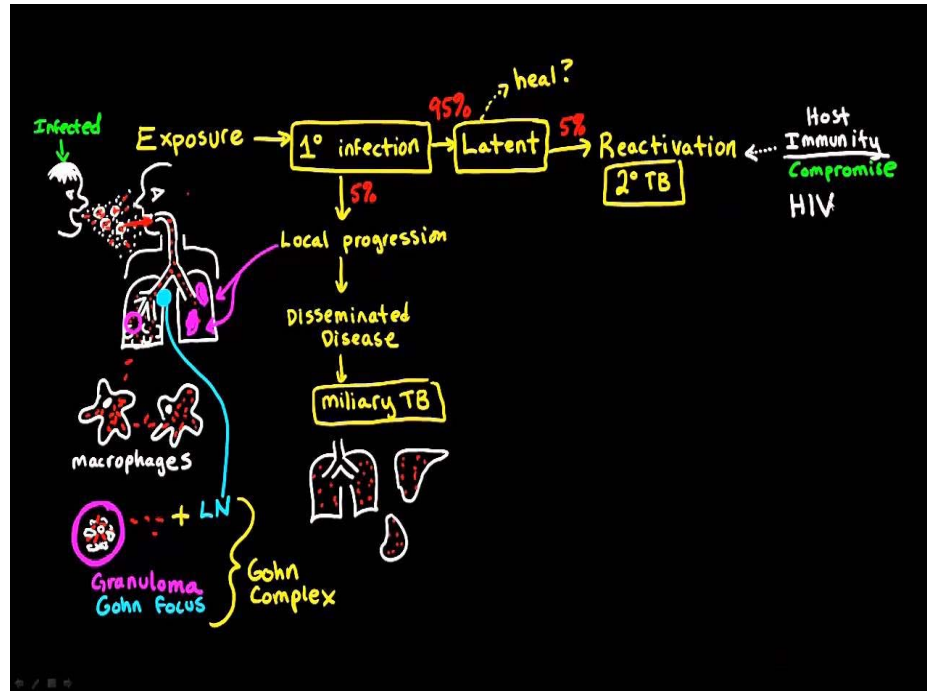 Infected
Exposure
1° infection
95%
Latent
heal?
5%
Reactivation
2° TB
Host
Immunity
Compromise
HIV
5%
Local progression
Disseminated
Disease
miliary TB
macrophages
+ LN
Granuloma
Gohn Focus
Gohn
Complex